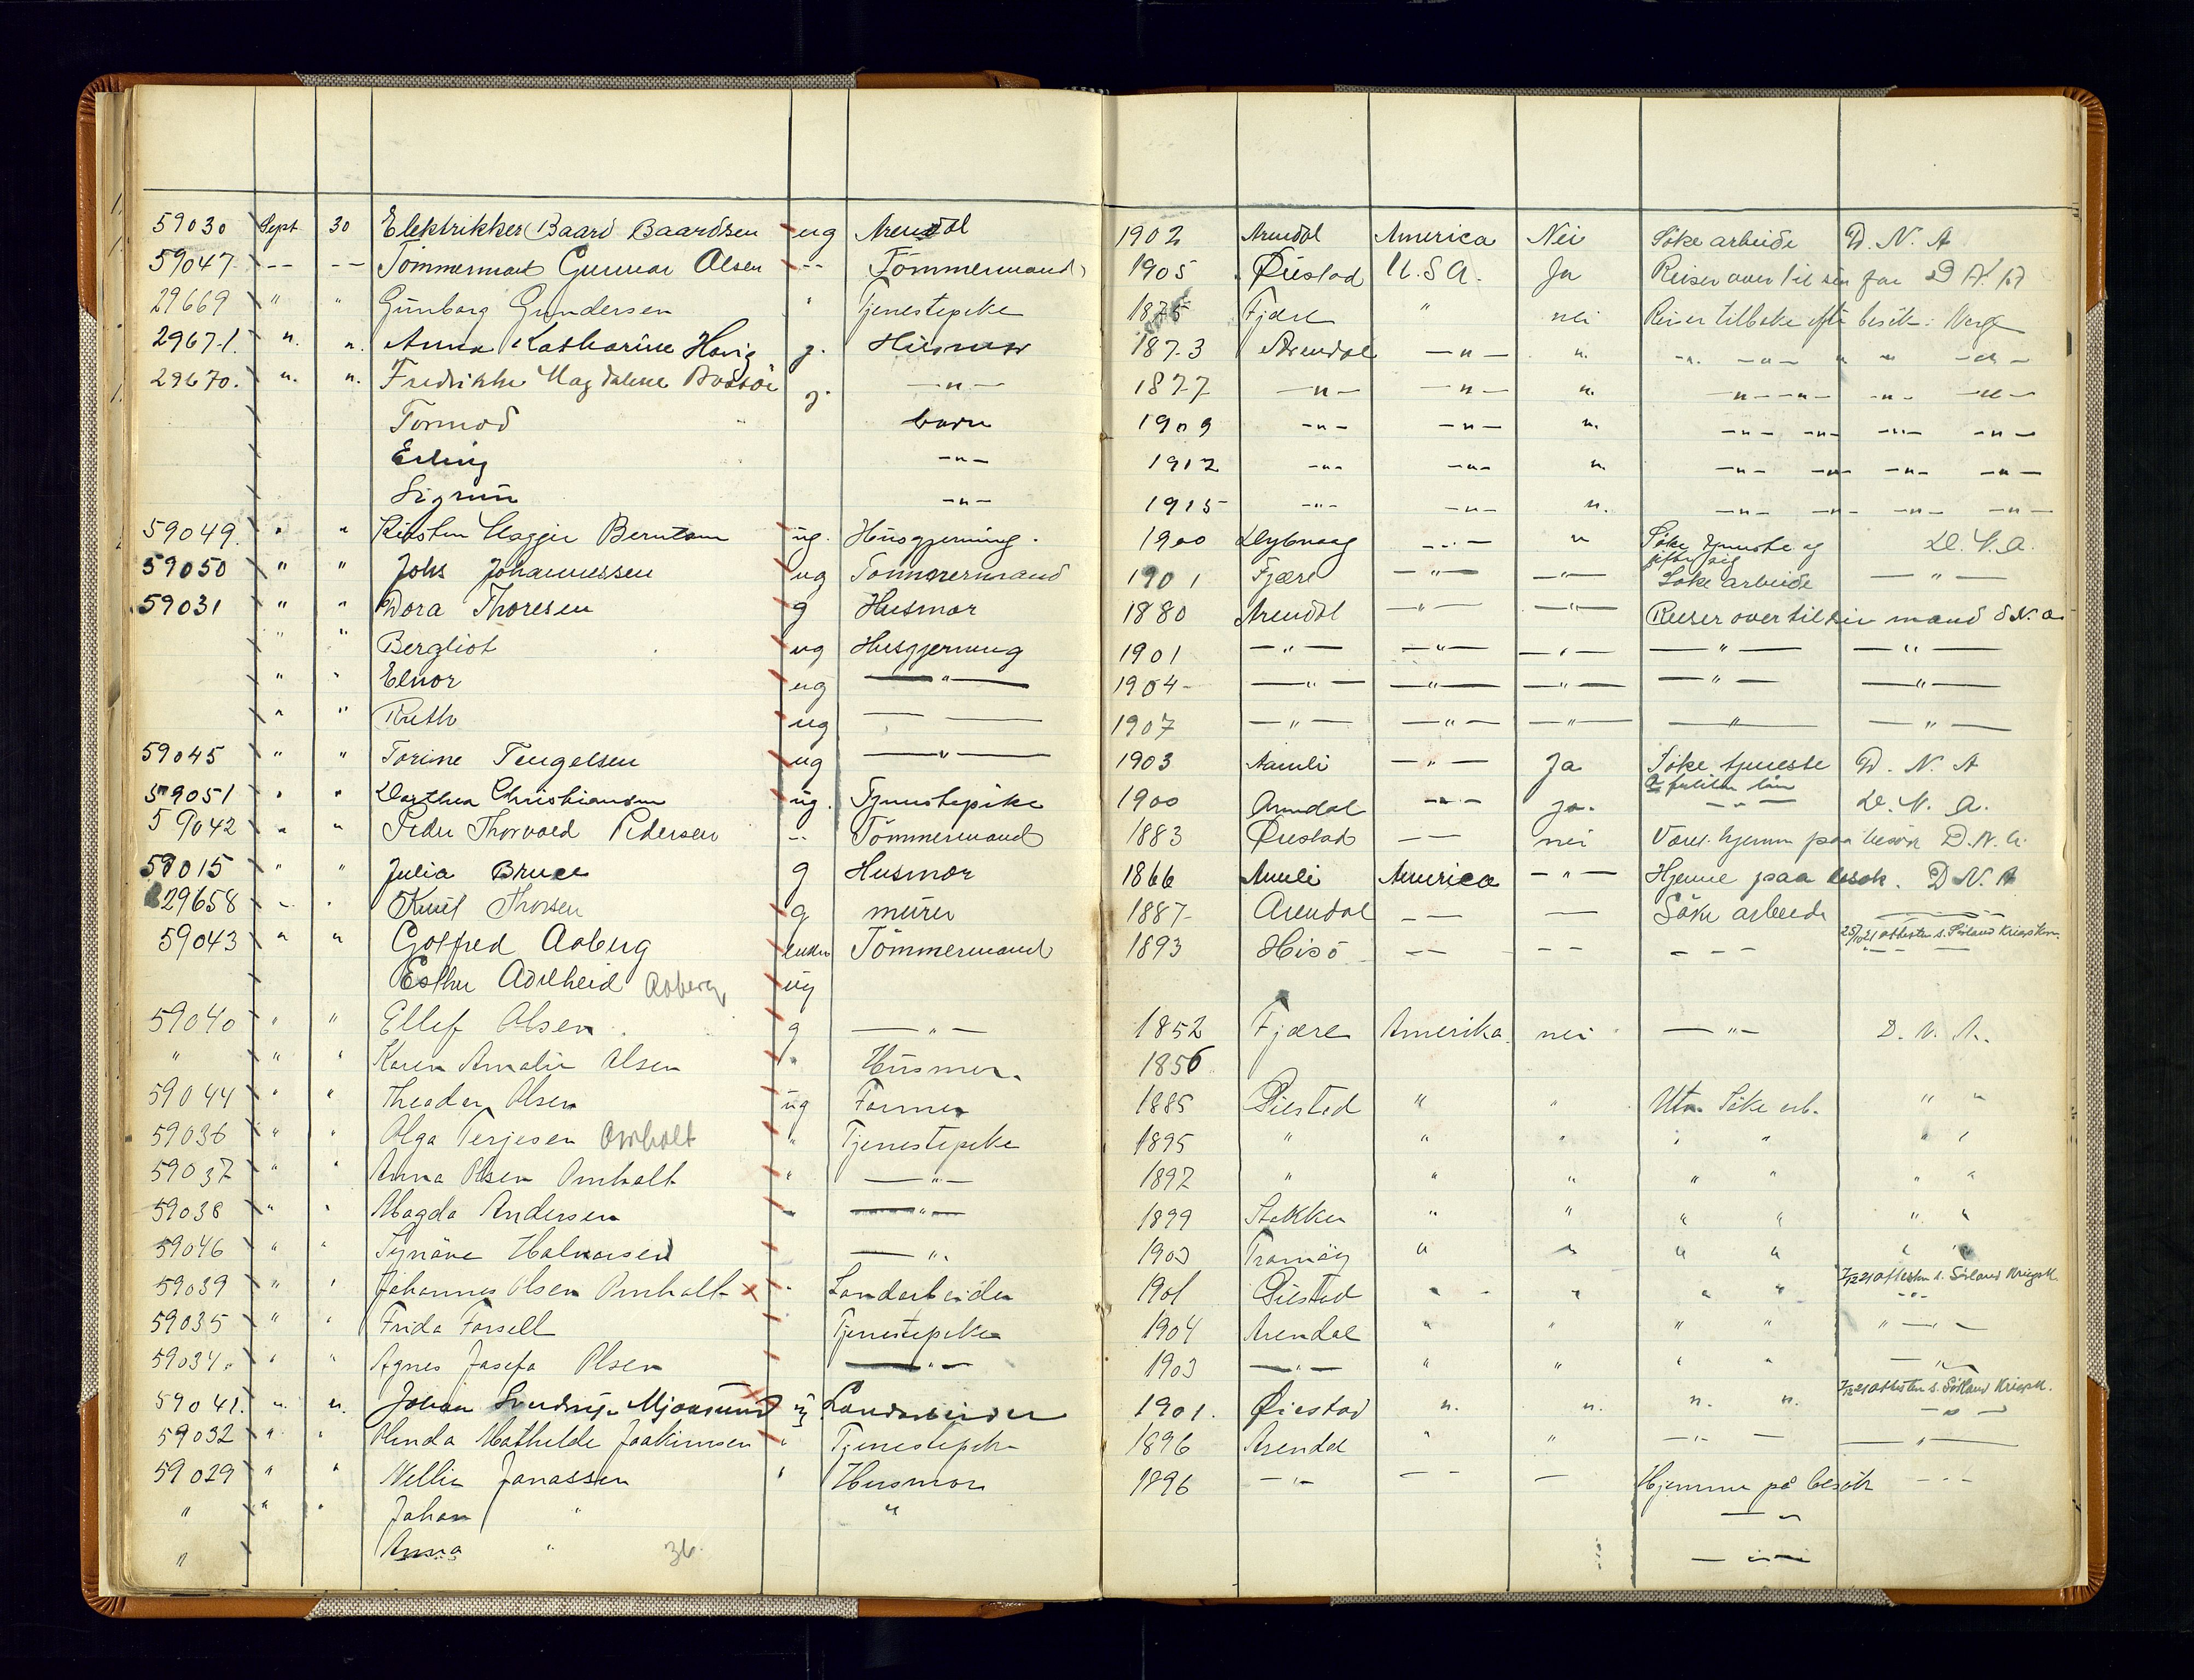 59030 Sept 30 Elektrikker Baard Baardsen ug Arendal 1902 Arendal America Nei Söke arbeide D. N. A
59047 -- -- Tömmermand Gunnar Olsen -- Tömmermand 1905 Øiestad U.S.A. Ja Reiser over til sin far D N A
29669 " " Gunborg Gundersen " Tjenestepike 1875 Fjære " nei Reiser tilbake efter besök: Norge
29671. ". ". Anna Katharine Hovig g. Husmor 1873 Arendal —"— ". ". —"— " " —"—
29670. ". ". Fredrikke Magdalene g. —"— 1877 —"— —"— ". —"— —"— —"— —"—
Tormod barn 1909 —"— —"— ". —"— —"— —"— —"—
Erling —"— 1912 —"— —"— ". —"— —"— —"— —"—
Sigrun —"— 1915 —"— —"— ". —"— —"— —"— —"—
59049. " " Kirsten Maggie Berntsen ug. Husgjerning. 1900 Dybvaag —"— " Söke tjeneste og gifte sig D. N. A.
59050 " " Johs Johannessen ug Tömmermand 1901 Fjære —"— —"— Söke arbeide —"—
59031 " " Dora Thoresen g Husmor 1880 Arendal —"— —"— Reiser over til sin mand D N. A
" " Bergliot ug Husgjerning 1901 —"— —"— —"— —"— —"—
" " Elnor ug —"— 1904 —"— —"— —"— —"— —"—
" " Ruth ug — — 1907 —"— —"— —"— —"— —"—
59045 " " Torine Tengelsen ug —"— 1903 Aamli —"— Ja Söke tjeneste D. N. A
59051 " " Dorthea Christiansen ug. Tjenestepike 1900 Arendal —"— ja. —"— D. N. A.
59042 " " Peder Thorvald Pedersen -- Tömmermand 1883 Øiestad —— nei Været hjemm paa besök D. N. A.
59015 " " Julia Bruce g Husmor 1866 Aamli America —"— Hjemme paa besøk. D N. A
29658 " " Knut Thorsen g murer 1887 Arendal —— —— Söke arbeide —"—
59043 " " Gotfred Aaberg Tömmermand 1893 Hisö —— —— — — — 25/10 21 attesten s. Sörland Krigskom.
Esther Adelheid Aaberg ug
59040 " " Ellef Olsen. g —"— 1852 Fjære Amerika. nei —"— D. N. A.
" " " Karen Amalie Olsen " Husmor. 1856
59044 " " Theodor Olsen ug Farmer 1885 Øiestad " " Utv. Söke arb. " "
59036 " " Olga Terjesen Omholt " Tjenestepike 1895 " " " " " " "
59037 " " Anna Olsen Omholt " —"— 1897 " " " " " " "
59038 " " Magda Andersen " —"— 1899 Stokken " " " " " "
59046 " " Synöve Halvorsen —"— 1903 Tromöy " " " " " "
59039 " " Johannes Olsen Omholt x " Landarbeider 1901 Øiestad " " " " 7/12 21 attesten s. Sörland Krigsk. —"—
59035 " " Frida Forsell Tjenestepike 1904 Arendal " " " " " — " —
59034. " " Agnes Josefa Olsen —"— 1903 —"— " " " " —"—
59041. ". ". Johan Mjaasund ug Landarbeider 1901. Øiestad ". ". ". ". 7/12 21 attesten s. Sörland Krigsk. —"—
59032 " " Olinda Mathilde Joakimsen " Tjenestepike 1896 Arendal " " —"— — —"—
59029 " " Nellie Jonassen " Husmor 1896 —"— —— — Hjemme på besök —"—
" " " Johan " " —"—
" Anna " 36. —"—